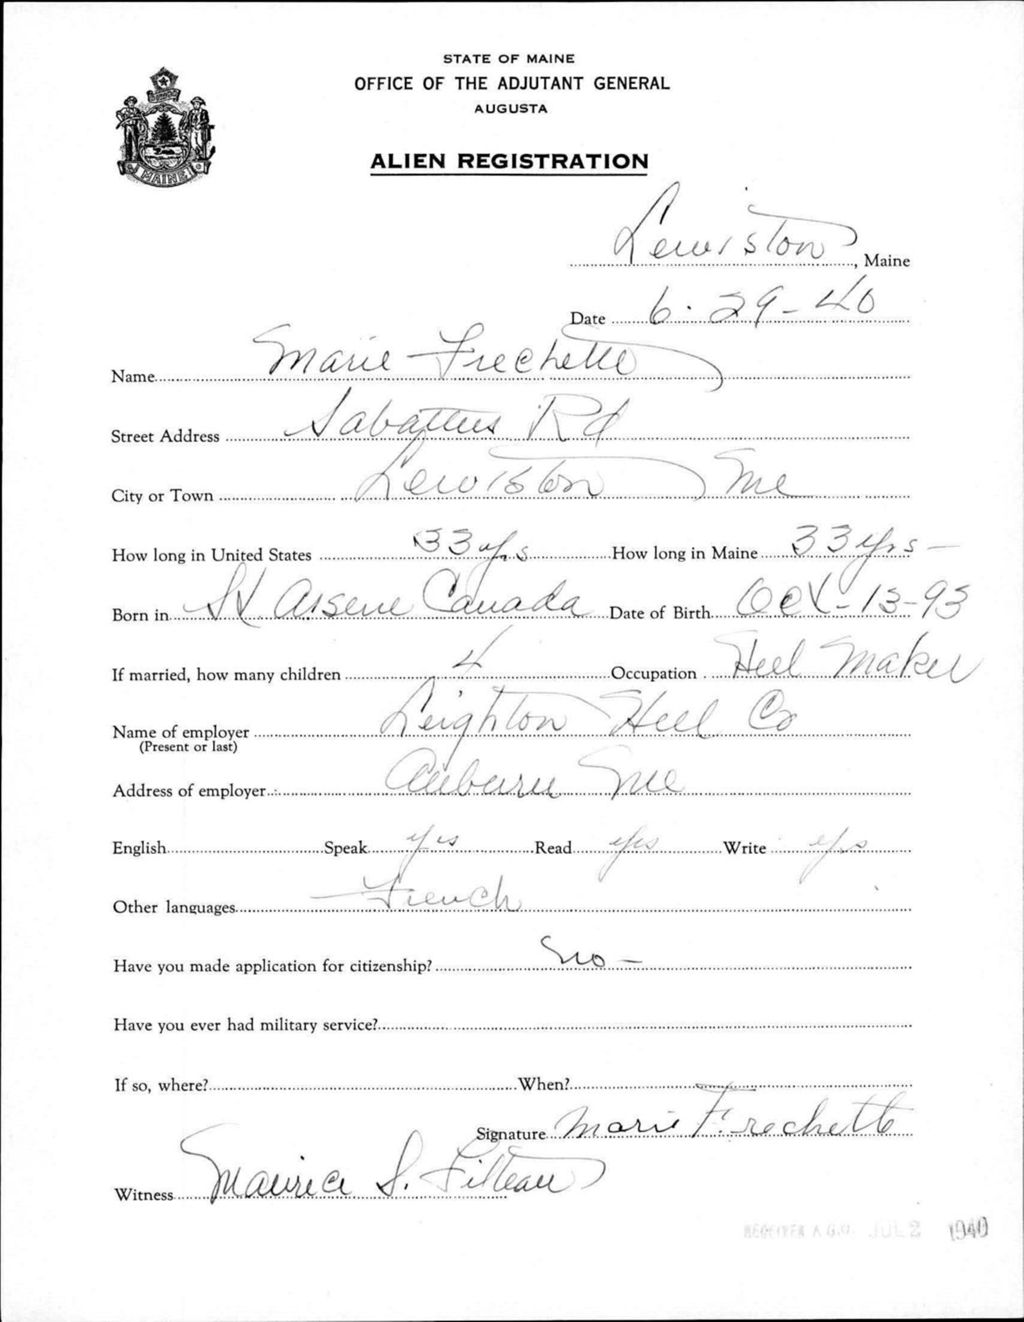 STATE OF MAINE
OFFICE OF THE ADJUTANT GENERAL
AUGUSTA
MAINE
ALIEN REGISTRATION
Lewiston, Maine
Date 6-29-40
Name Marie Frechette
Street Address Sabattus Rd
City or Town Lewiston Me
How long in United States 33 yrs How long in Maine 33 yrs -
Born in St Arsene Canada Date of Birth Oct-13-93
If married, how many children 4 Occupation Heel Maker
Name of employer Leighton Heel Co
(Present or last)
Address of employer Auburn Me
English Speak yes Read yes Write yes
Other languages French
Have you made application for citizenship? No -
Have you ever had military service?
If so, where? When?
Signature Marie Frechette
Witness Maurice S. Filteau
RECEIVED A.G.O. JUL 2 1940